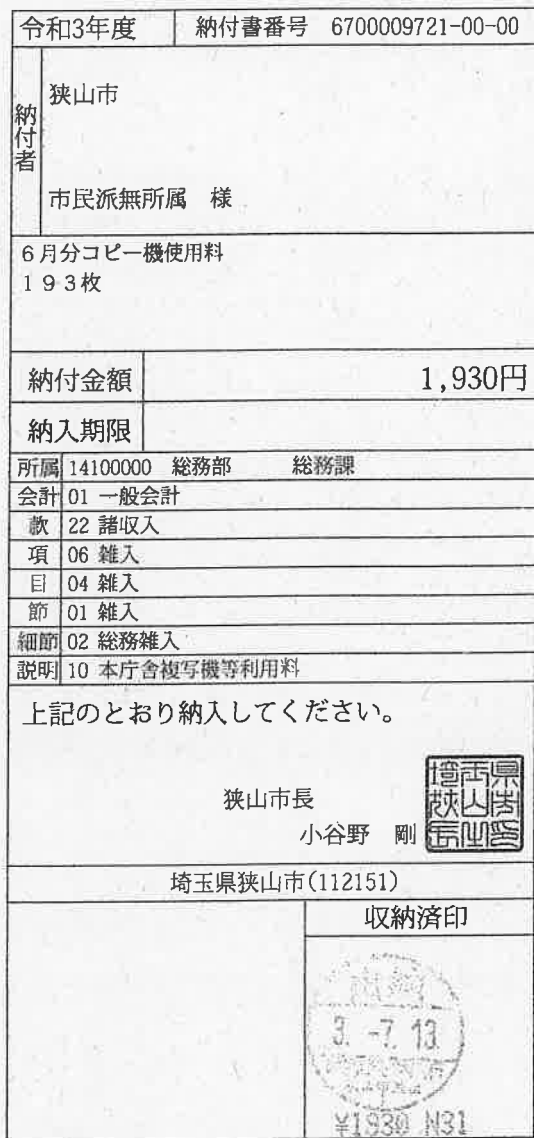 令和3年度 納付書番号 6700009721-00-00
納付者
狭山市
市民派無所属 様
6月分コピー機使用料
193枚
納付金額 1,930円
納入期限
所属 14100000 総務部 総務課
会計 01 一般会計
款 22 諸収入
項 06 雑入
目 04 雑入
節 01 雑入
細節 02 総務雑入
説明 10 本庁舎複写機等利用料
上記のとおり納入してください。
狭山市長
小谷野 剛
埼玉県狭山市(112151)
収納済印
3.-7.13
¥1930 N31